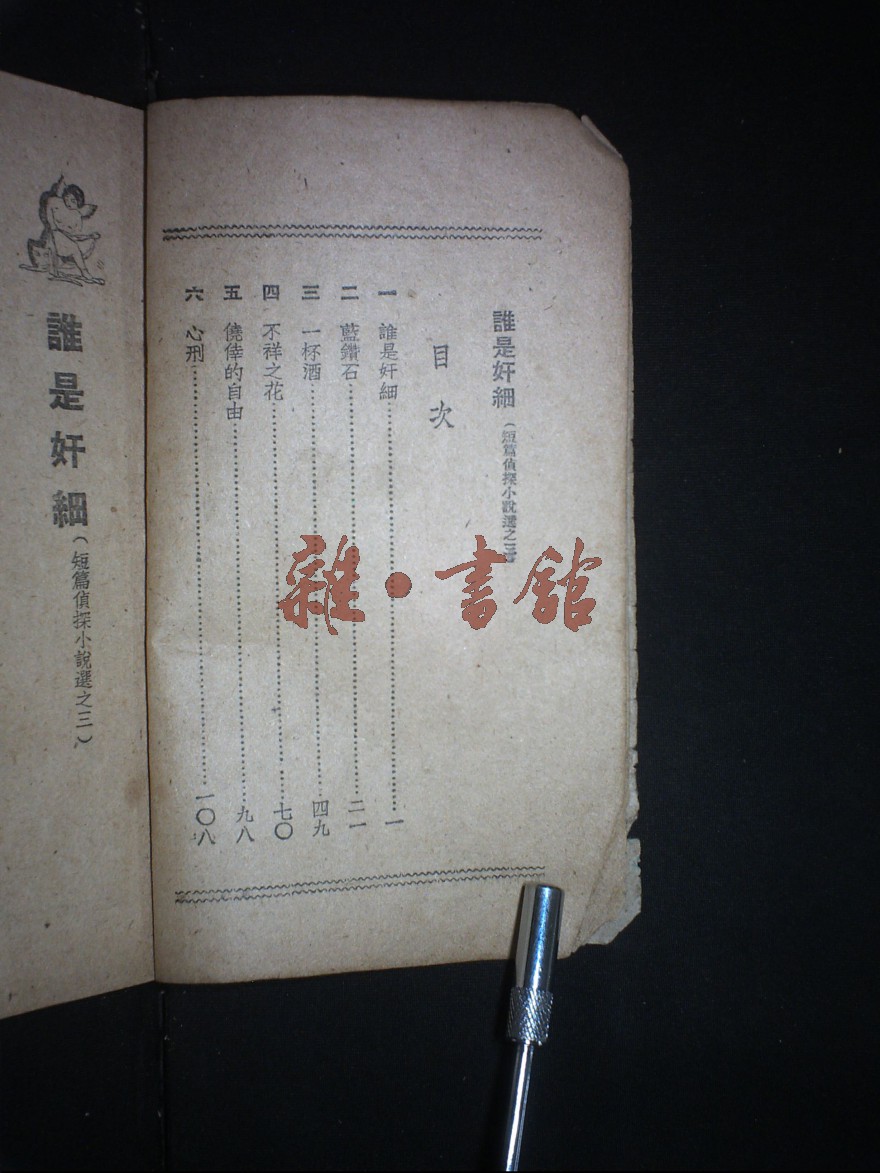 誰是奸細(短篇偵探小說選之三)
目次
一 誰是奸細……一
二 藍鑽石……二一
三 一杯酒……四九
四 不祥之花……七〇
五 僥倖的自由……九八
六 心刑……一〇八
誰是奸細(短篇偵探小說選之三)
雜·書館